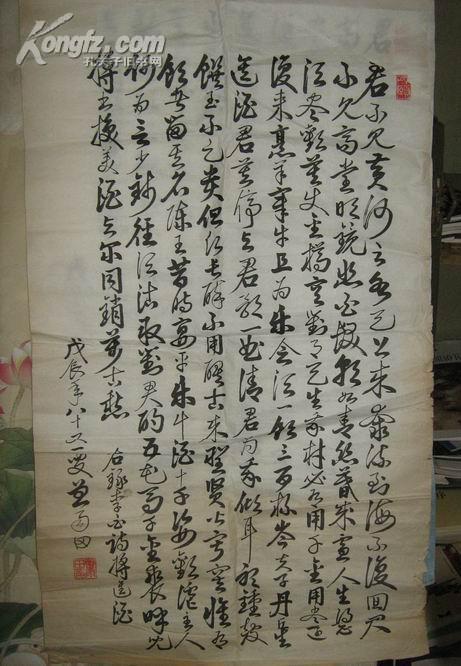 Kongfz.com
孔夫子旧书网
君不见黄河之水天上来奔流到海不复回君
不见高堂明镜悲白发朝如青丝暮成雪人生得意
须尽欢莫使金樽空对月天生我材必有用千金用尽还
复来烹羊宰牛且为乐会须一饮三百杯岑夫子丹丘生
进酒君莫停与君歌一曲请君为我倾耳听钟鼓
馔玉不足贵但愿长醉不用醒古来圣贤皆寂寞惟有
饮者留其名陈王昔时宴平乐斗酒十千恣欢谑主人
何为言少钱径须沽取对君酌五花马千金裘呼儿
将出换美酒与尔同销万古愁
李白诗将进酒
戊辰年八十又一叟